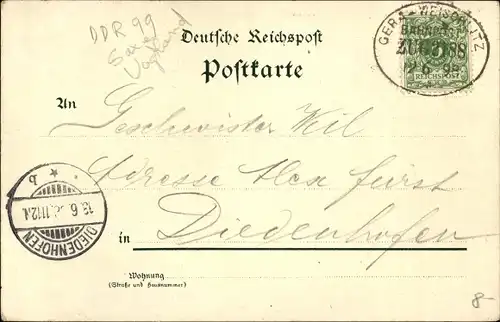 DDR 99
Vogtland
Deutsche Reichspost
Postkarte
GERA - WEISCHLITZ
BAHNPOST
ZUG
REICHSPOST
An
Geschwister Weil
Adresse Alex Fürst
in Diedenhofen
DIEDENHOFEN
13.6.
* b
Wohnung
(Straße und Hausnummer)
8-